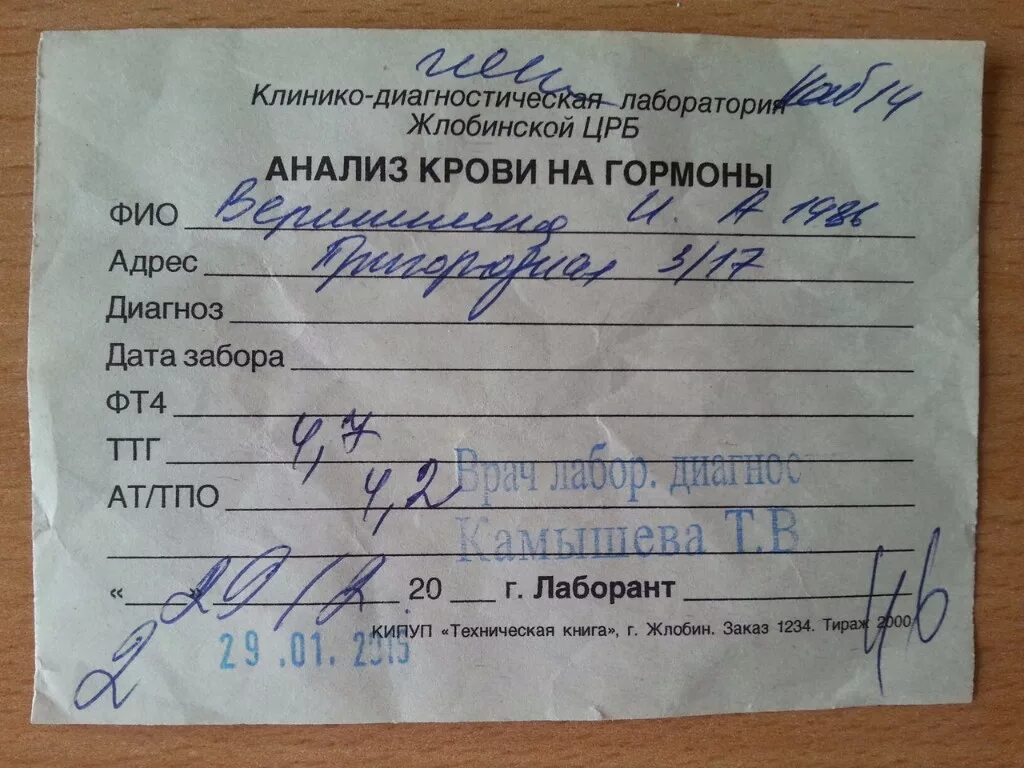 жен
Клинико-диагностическая лаборатория Каб 14
Жлобинской ЦРБ
АНАЛИЗ КРОВИ НА ГОРМОНЫ
ФИО И. А 1986
Адрес Пригородная 3/17
Диагноз
Дата забора
ФТ4
ТТГ 4,7
АТ/ТПО 4,2
Врач лабор. диагнос
Камышева Т.В
« » 29/2 20 г. Лаборант 46
КИПУП «Техническая книга», г. Жлобин. Заказ 1234. Тираж 2000
29.01.2015
2